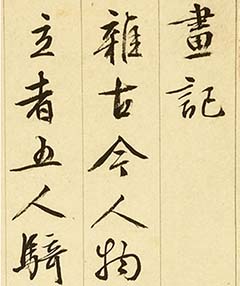 畫記
雜古今人物
立者五人騎